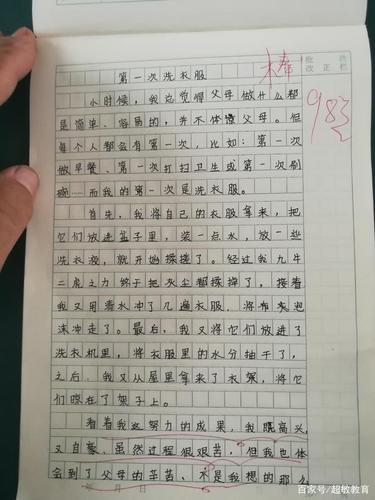 棒
批改
改正栏
983
第一次洗衣服
小时候，我总觉得父母做什么都
是简单、容易的，并不体谅父母。但
每个人都会有第一次，比如：第一次
做早餐、第一次打扫卫生或第一次刷
碗……而我的第一次是洗衣服。
首先，我将自己的衣服拿来，把
它们放进盆子里，装一点水，放一些
洗衣液，就开始揉搓了。经过我九牛
二虎之力终于把灰尘都揉掉了，接着
我又用清水冲了几遍衣服，将布
沫冲走了。最后，我又将它们放进了
洗衣机里，将衣服里的水分抽干了，
之后，我又从屋里拿来了衣架，将它
们晾在了架子上。
看着我这努力的成果，我既高兴
又自豪。虽然过程很艰苦，但我也体
会到了父母的辛苦，不是我想的那么
年 月 日
百家号/超敏教育